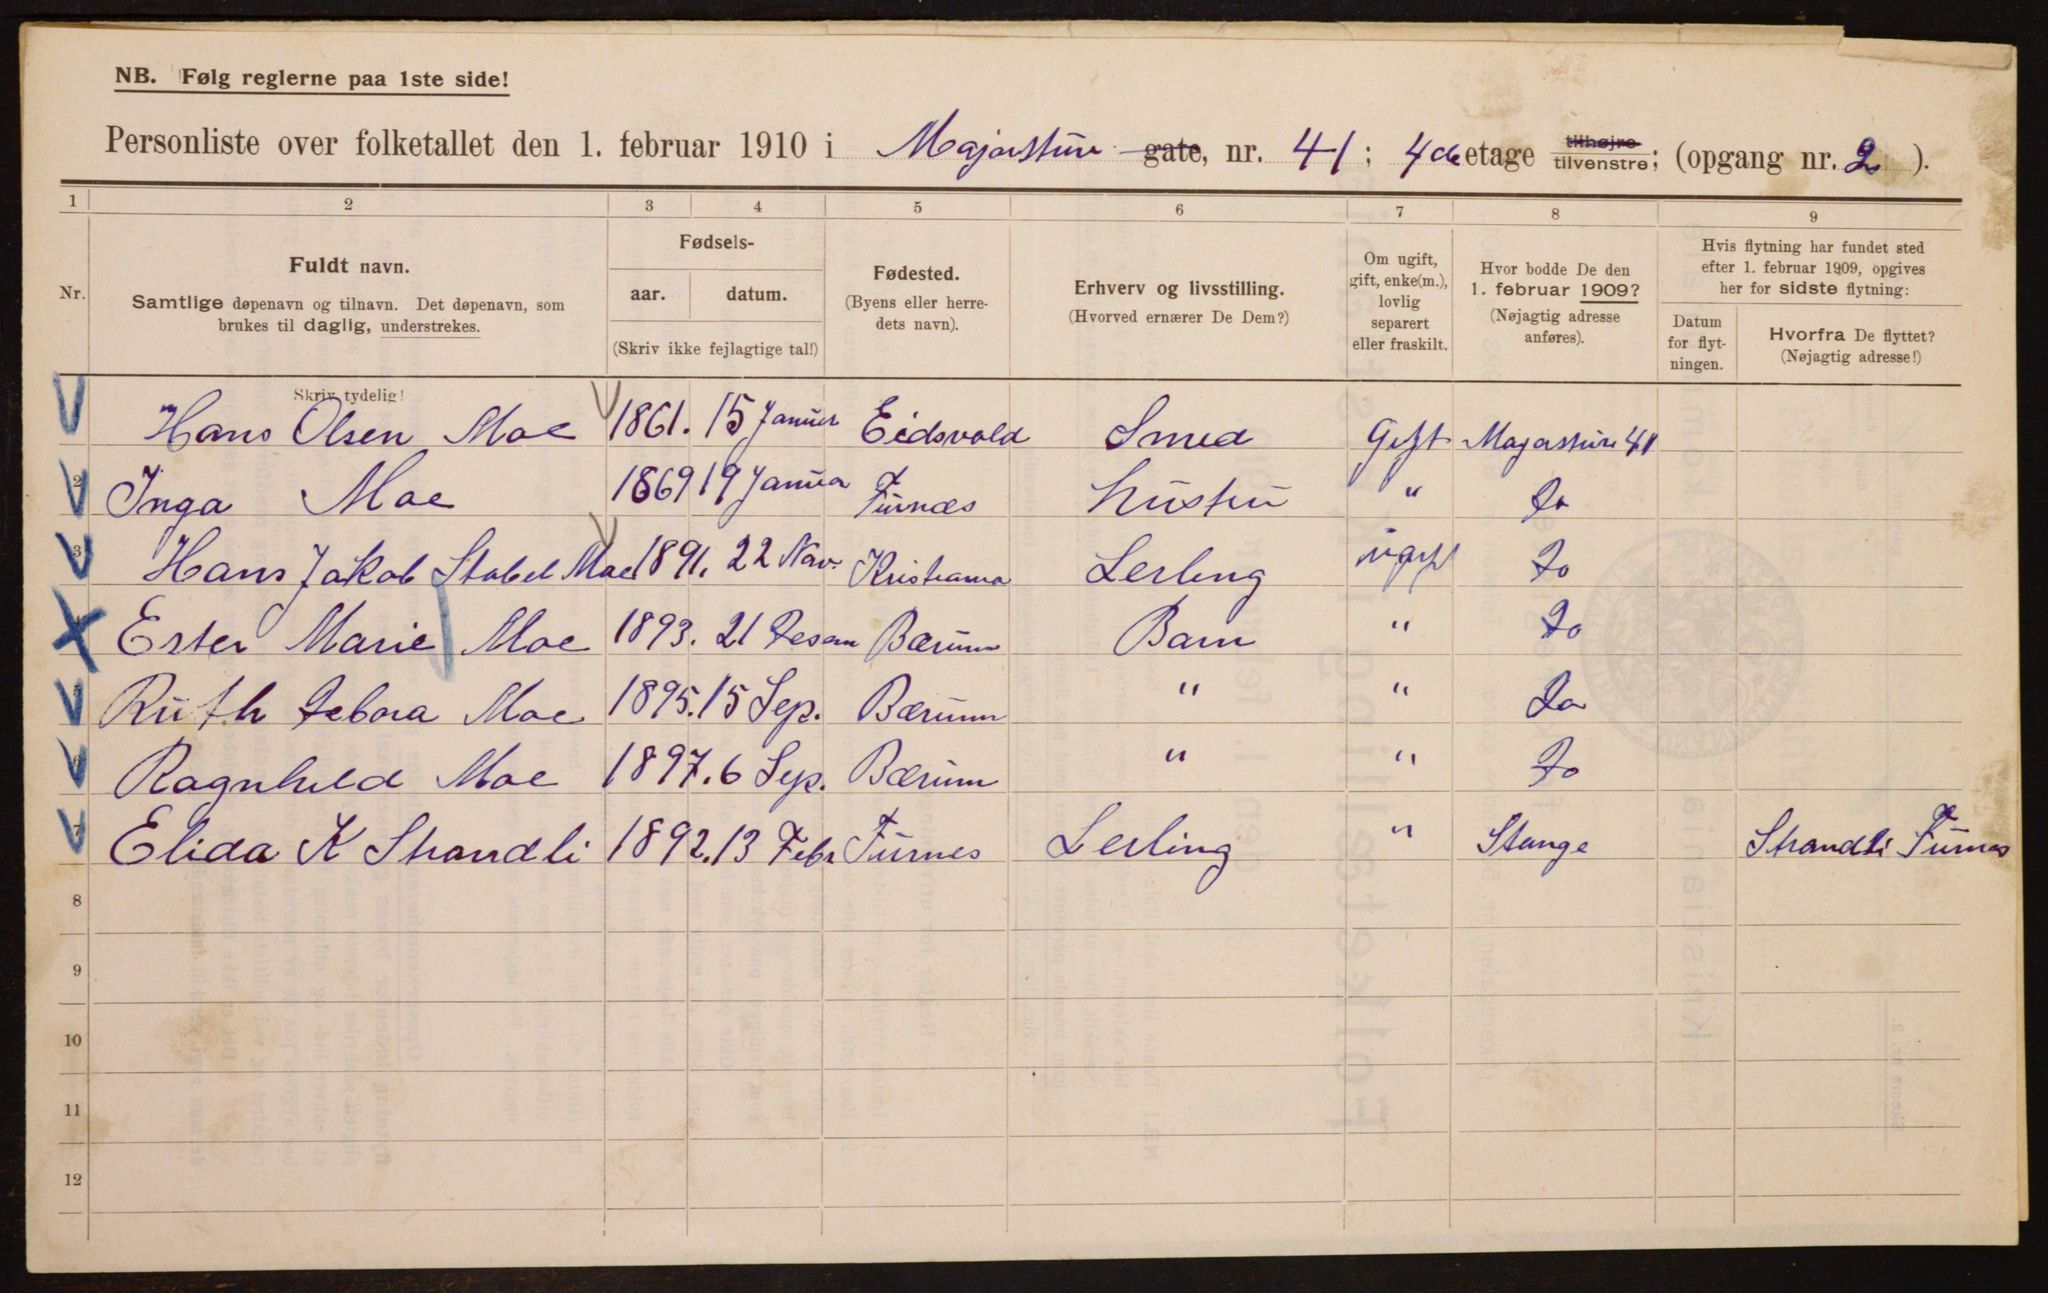 NB. Følg reglerne paa 1ste side!
Personliste over folketallet den 1. februar 1910 i Majorstuve gate, nr. 41; 4de etage tilhøjre tilvenstre; (opgang nr. 2).
1 2 3 4 5 6 7 8 9
Nr.
Fuldt navn.
Samtlige døpenavn og tilnavn. Det døpenavn, som
brukes til daglig, understrekes.
Fødsels-
aar. datum.
(Skriv ikke fejlagtige tal!)
Fødested.
(Byens eller herre-
dets navn).
Erhverv og livsstilling.
(Hvorved ernærer De Dem?)
Om ugift,
gift, enke(m.),
lovlig
separert
eller fraskilt.
Hvor bodde De den
1. februar 1909?
(Nøjagtig adresse
anføres).
Hvis flytning har fundet sted
efter 1. februar 1909, opgives
her for sidste flytning:
Datum
for flyt-
ningen.
Hvorfra De flyttet?
(Nøjagtig adresse!)
Skriv tydelig!
Hans Olsen Moe 1861. 15 Januer Eidsvold Smed Gift Majorstuve 41
2 Inga Moe 1869 19 Janua Furnæs Hustru " Do
3 Hans Jakob Stabel Moe 1891. 22 Nov. Kristiania Lerling ugift Do
4 Ester Marie Moe 1893. 21 Desem Bærum Barn " Do
5 Ruth Debora Moe 1895. 15 Sep. Bærum " " Do
6 Ragnhild Moe 1897. 6 Sep. Bærum " " Do
7 Elida K Strandli 1892. 13 Febr Furnes Lerling " Stange Strandli Furnes
8
9
10
11
12